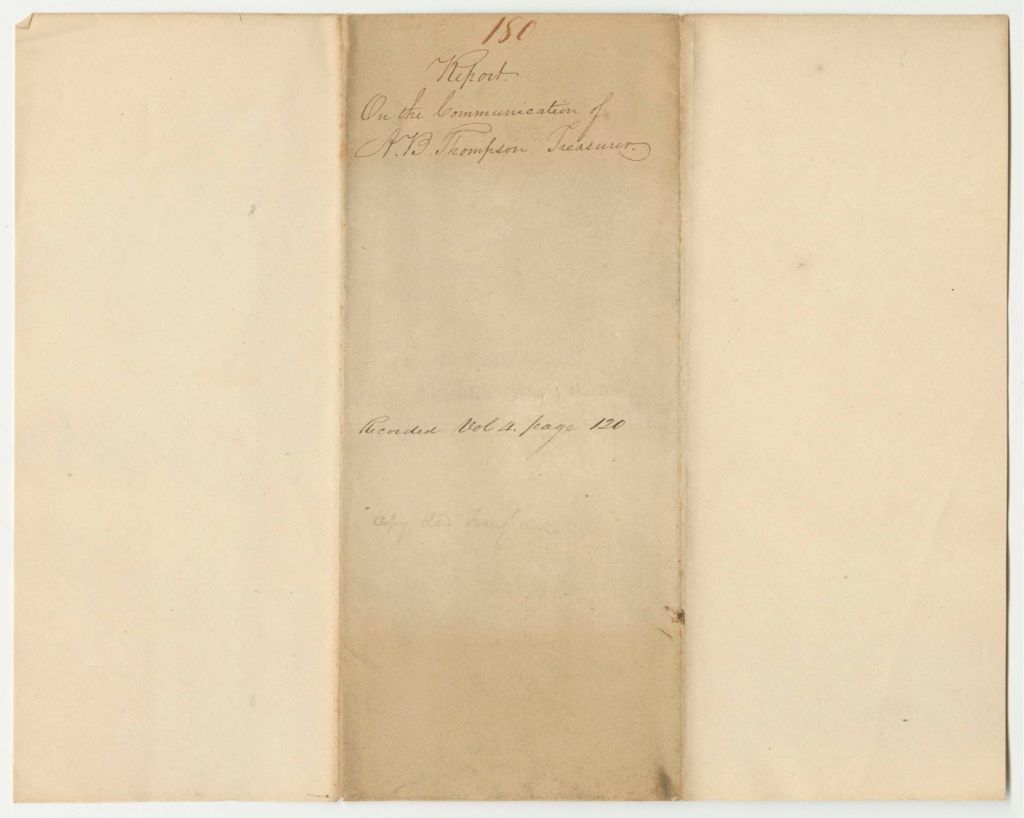 180
Report.
On the Communication of
A. B. Thompson. Treasurer.
Recorded Vol 4. page 120
copy